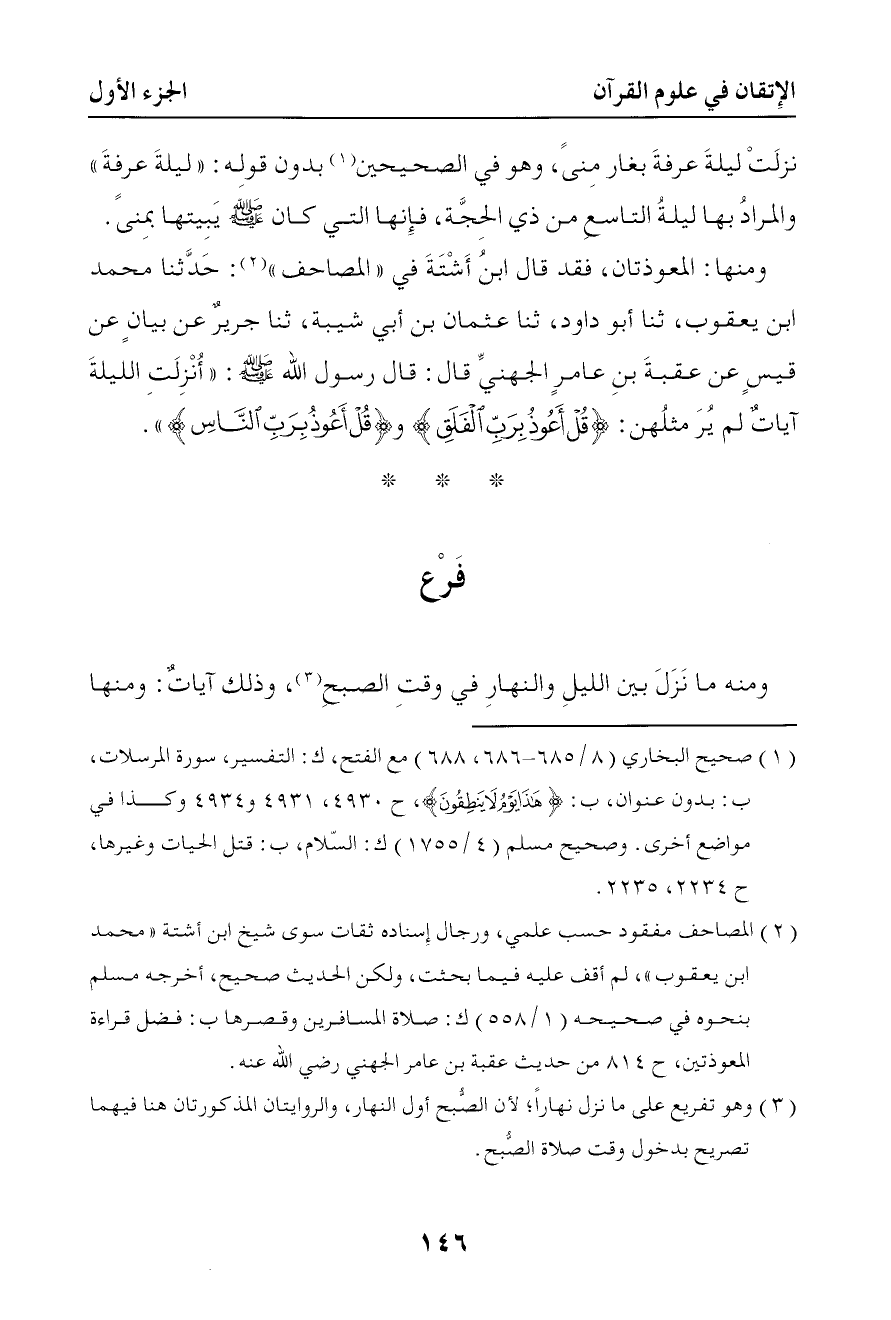 الإتقان في علوم القرآن الجزء الأول
نزلَتْ ليلةَ عرفةَ بغار مِنىً، وهو في الصحيحين(١) بدون قولِه: «ليلةَ عرفةَ»
والمرادُ بها ليلةُ التاسعِ من ذي الحِجَّة، فإنها التي كان ﷺ يَبِيتها بمِنىً.
ومنها: المعوذتان، فقد قال ابنُ أَشْتَةَ في «المصاحف»(٢): حَدَّثنا محمد
ابن يعقوب، ثنا أبو داود، ثنا عثمان بن أبي شيبة، ثنا جريرٌ عن بيانٍ عن
قيسٍ عن عقبةَ بنِ عامرٍ الجهنيِّ قال: قال رسول الله ﷺ: «أُنْزِلَتِ الليلةَ
آياتٌ لم يُرَ مثلُهن: ﴿قُلْ أَعُوذُ بِرَبِّ ٱلْفَلَقِ﴾ و﴿قُلْ أَعُوذُ بِرَبِّ ٱلنَّاسِ﴾».
* * *
فَرْع
ومنه ما نَزَلَ بين الليلِ والنهارِ في وقتِ الصبحِ(٣)، وذلك آياتٌ: ومنها
(١) صحيح البخاري (٨/ ٦٨٥–٦٨٦، ٦٨٨) مع الفتح، ك: التفسير، سورة المرسلات،
ب: بدون عنوان، ب: ﴿هَٰذَا يَوْمُ لَا يَنطِقُونَ﴾، ح ٤٩٣٠، ٤٩٣١ و٤٩٣٤ وكذا في
مواضع أخرى. وصحيح مسلم (٤/ ١٧٥٥) ك: السّلام، ب: قتل الحيات وغيرها،
ح ٢٢٣٤، ٢٢٣٥.
(٢) المصاحف مفقود حسب علمي، ورجال إسناده ثقات سوى شيخ ابن أشتة «محمد
ابن يعقوب»، لم أقف عليه فيما بحثت، ولكن الحديث صحيح، أخرجه مسلم
بنحوه في صحيحه (١/ ٥٥٨) ك: صلاة المسافرين وقصرها ب: فضل قراءة
المعوذتين، ح ٨١٤ من حديث عقبة بن عامر الجهني رضي الله عنه.
(٣) وهو تفريع على ما نزل نهاراً؛ لأن الصُّبح أول النهار، والروايتان المذكورتان هنا فيهما
تصريح بدخول وقت صلاة الصُّبح.
١٤٦